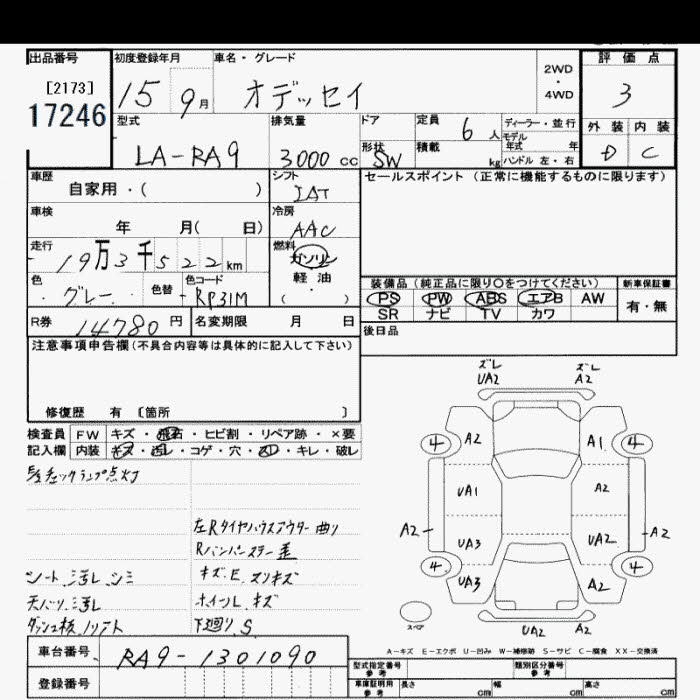 出品番号 初度登録年月 車名・グレード 2WD・4WD 評価点
[2173]
17246 15 9月 オデッセイ 3
型式 排気量 ドア 定員 6人 ディーラー・並行 外装 内装
モデル年式 年
LA-RA9 3000cc 形状 SW 積載 kg ハンドル 左・右 D C
車歴 シフト セールスポイント (正常に機能するものに限ります)
自家用・( ) IAT
車検 冷房
年 月( 日) AAC
走行 燃料
19万3千522km ガソリン
軽油
( ・ )
色 色替 色コード 装備品 (純正品に限り○をつけてください) 新車保証書
グレー RP31M PS PW ABS エアB AW 有・無
SR ナビ TV カワ
R券 14780円 名変期限 月 日
後日品
注意事項申告欄(不具合内容等は具体的に記入して下さい)
修復歴 有 〔箇所 〕
検査員 FW キズ・飛石・ヒビ割・リペア跡・×要
記入欄 内装 キズ・汚レ・コゲ・穴・スレ・キレ・破レ
チェックランプ点灯
左Rタイヤハウスアウター曲リ
シート汚レ シミ キズ、E、スリキズ
汚レ ホイール キズ
ダッシュ板 下廻り S
ズレ UA2 ズレ A2
4 A2 A1 4
UA1 A2
A2 A2
UA3 UA2
4 UA3 A2 4
スペア UA2 A2
A-キズ E-エクボ U-凹み W-補修跡 S-サビ C-腐食 XX-交換済
車台番号 RA9-1301090
型式指定番号 参考 類別区分番号 参考
登録番号
車庫証明用 参考 長さ cm 幅 cm 高さ cm